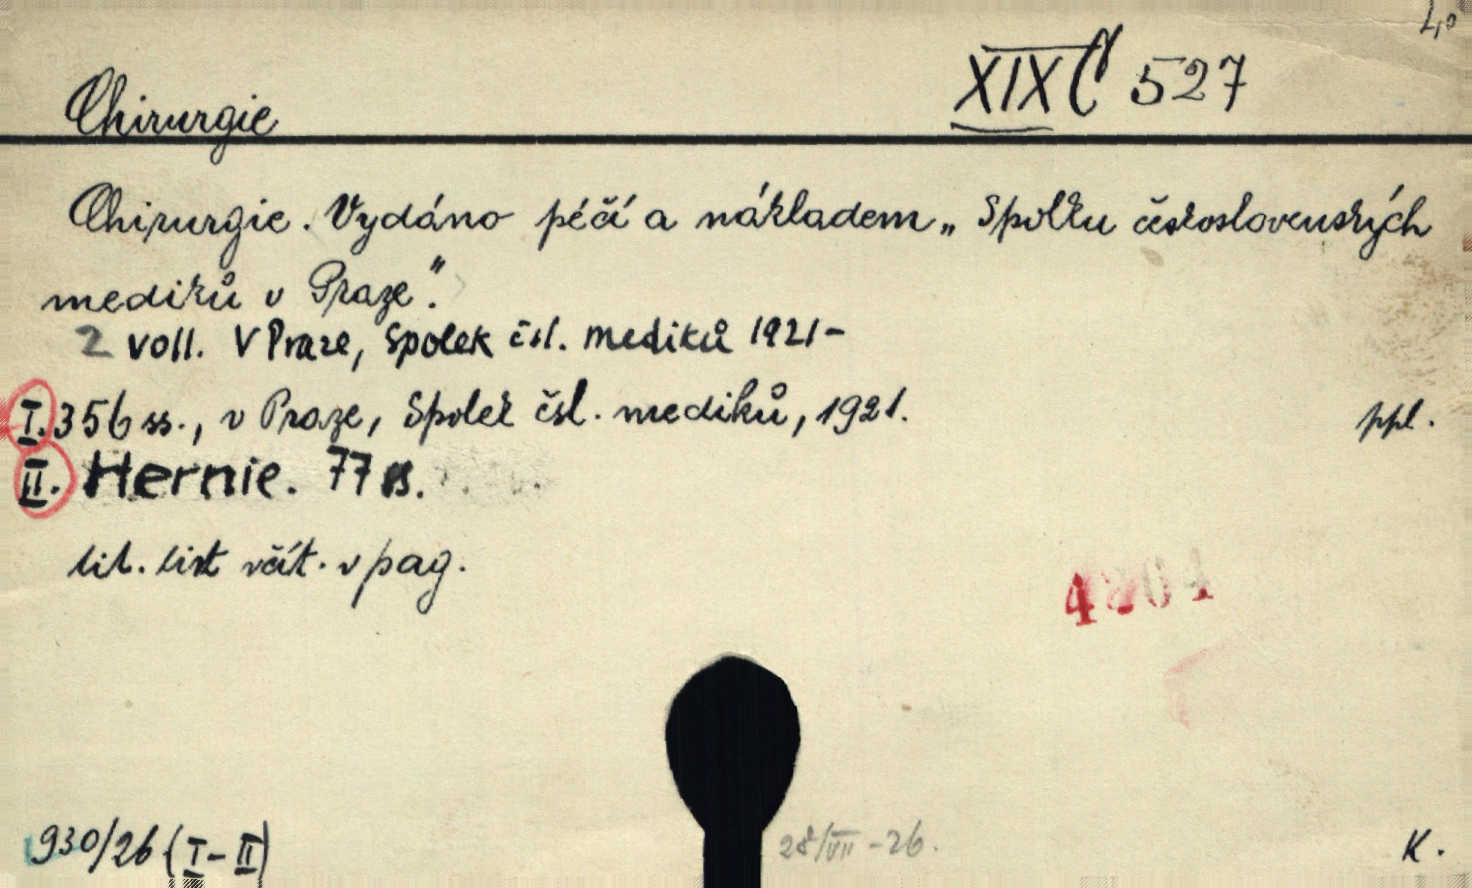 4°
XIX C 527
Chirurgie
Chirurgie. Vydáno péčí a nákladem „Spolku československých
mediků v Praze".
2 voll. V Praze, Spolek čsl. mediků 1921-
I. 356 ss., v Praze, Spolek čsl. mediků, 1921. ppl.
II. Hernie. 77 ss.
tit. list včít. v pag.
930/26 (I-II)
28/VII-26.
K.